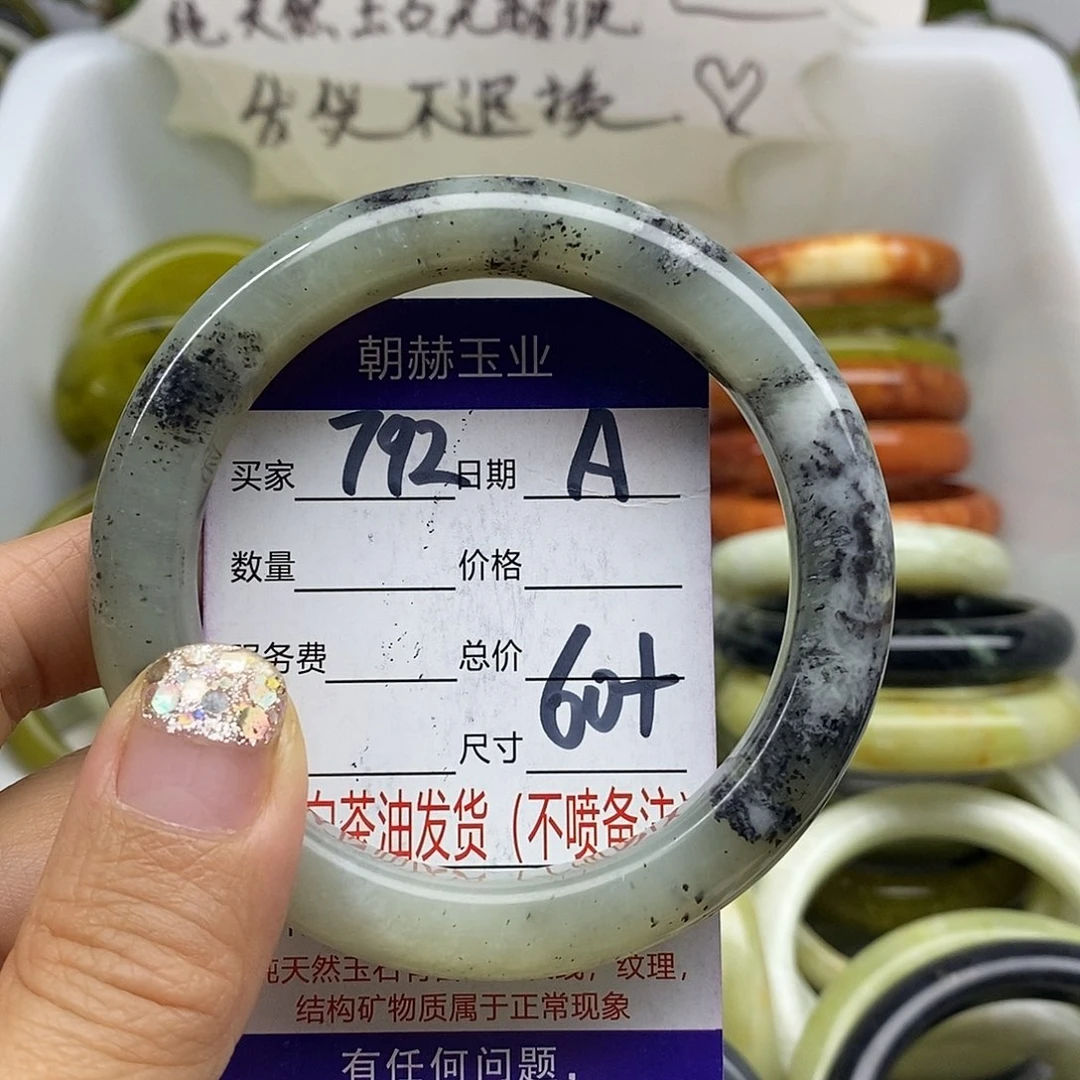 纯天然玉石无酸洗
售出不退换
朝赫玉业
买家 792 日期 A
数量 价格
服务费 总价
尺寸 60+
白茶油发货（不喷备注）
纯天然玉石 纹理，
结构矿物质属于正常现象
有任何问题，